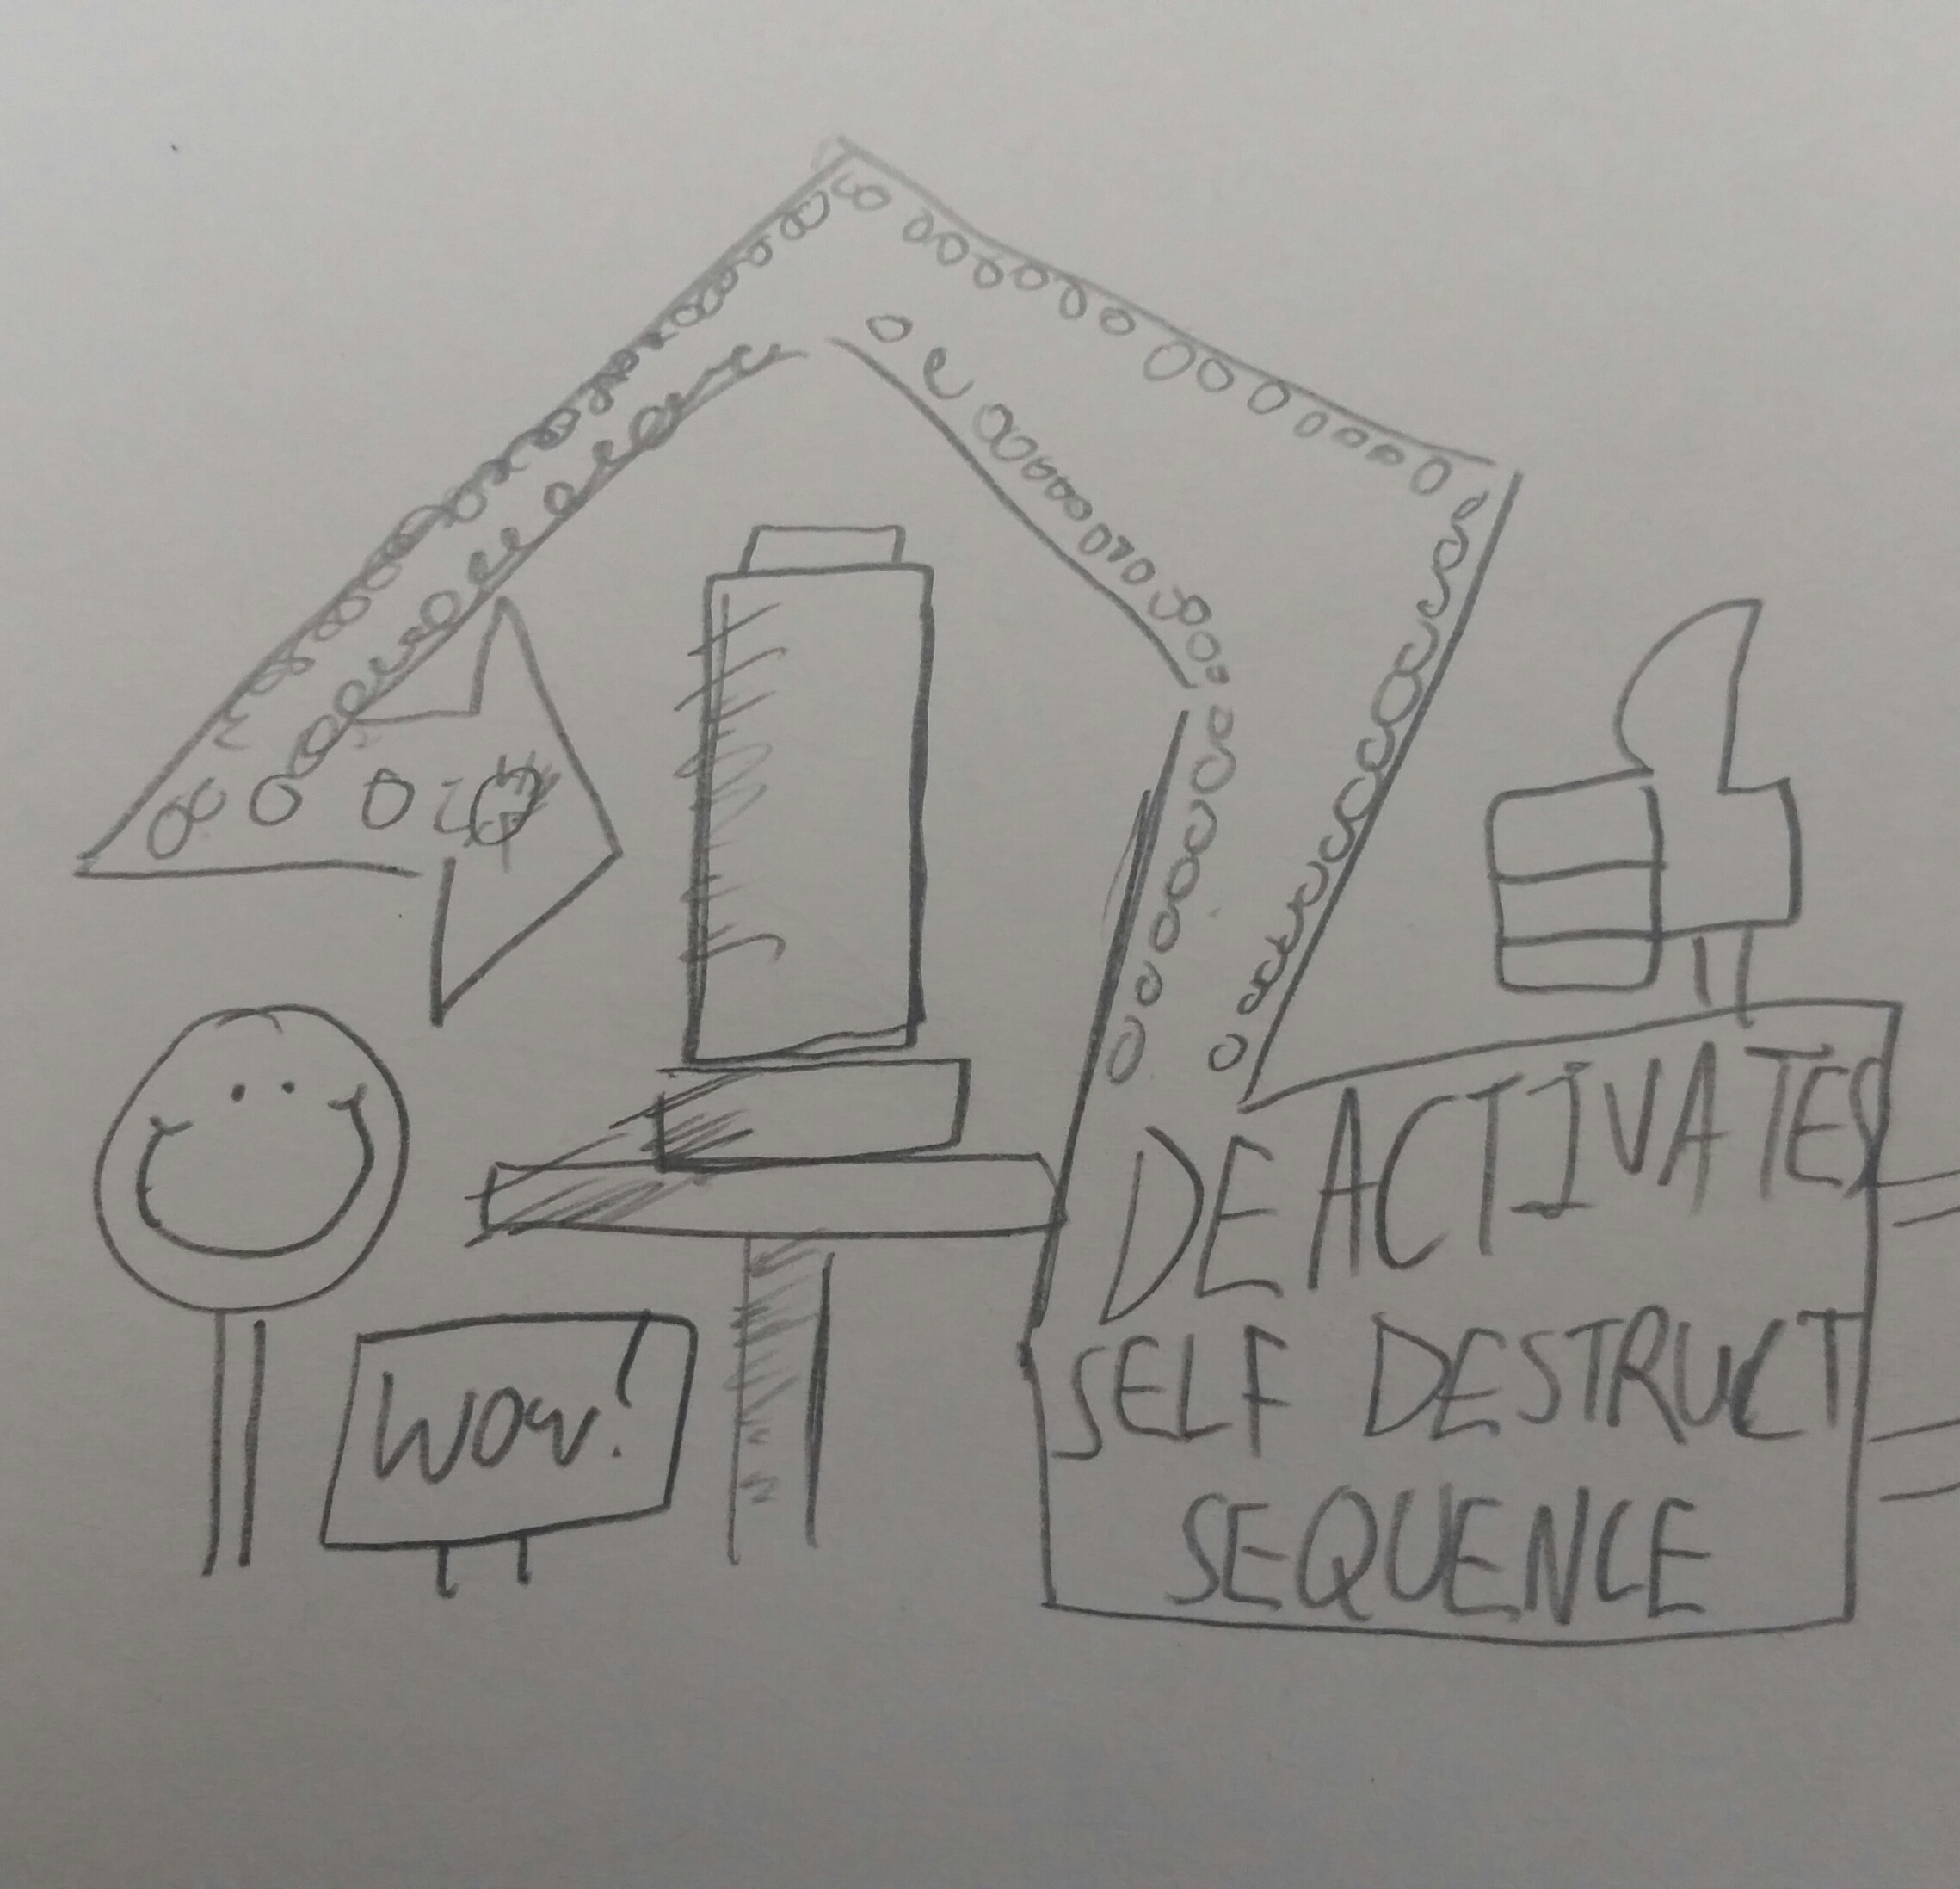 WOW!
DEACTIVATES
SELF DESTRUCT
SEQUENCE